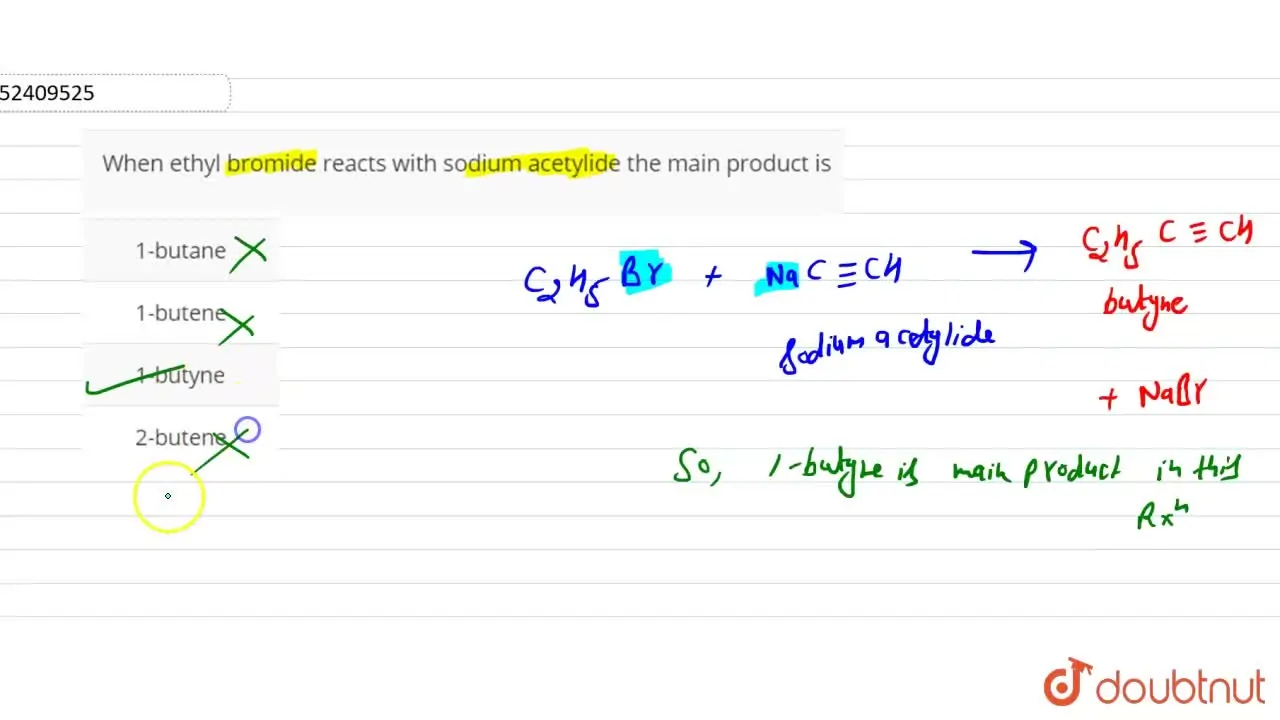 52409525
When ethyl bromide reacts with sodium acetylide the main product is
1-butane
1-butene
1-butyne
2-butene
C2H5-Br + NaC≡CH → C2H5C≡CH
sodium acetylide
butyne
+ NaBr
So, 1-butyne is main product in this
Rxn
doubtnut